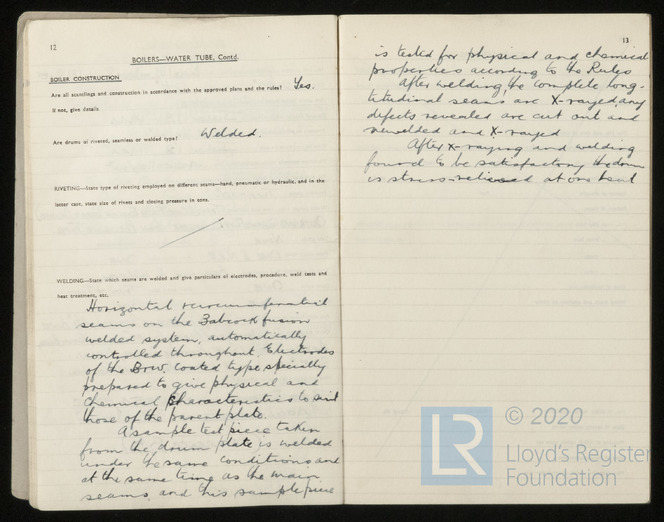 12
BOILERS—WATER TUBE, Contd.
BOILER CONSTRUCTION
Are all scantlings and construction in accordance with the approved plans and the rules? Yes.
If not, give details
Are drums of riveted, seamless or welded type? Welded.
RIVETING—State type of riveting employed on different seams—hand, pneumatic or hydraulic, and in the
latter case, state size of rivets and closing pressure in tons.
WELDING—State which seams are welded and give particulars of electrodes, procedure, weld tests and
heat treatment, etc.
Horizontal & circumferential
seams on the Babcock fusion
welded system, automatically
controlled throughout. Electrodes
of the B&W. coated type specially
prepared to give physical and
chemical characteristics to suit
those of the parent plate.
A sample test piece taken
from the drum plate is welded
under the same conditions and
at the same time as the main
seams, and this sample piece
13
is tested for physical and chemical
properties according to the Rules
After welding the complete long-
itudinal seams are X-rayed, any
defects revealed are cut out and
rewelded and X-rayed
After X-raying and welding
found to be satisfactory the drum
is stress-relieved at one heat
LR
© 2020
Lloyd's Register
Foundation